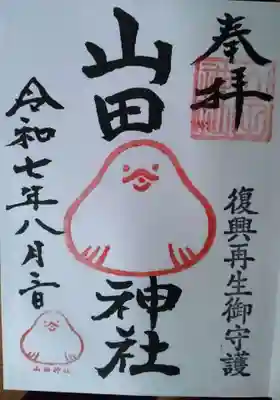 奉拝
復興再生御守護
山田神社
令和七年八月二日
山田神社